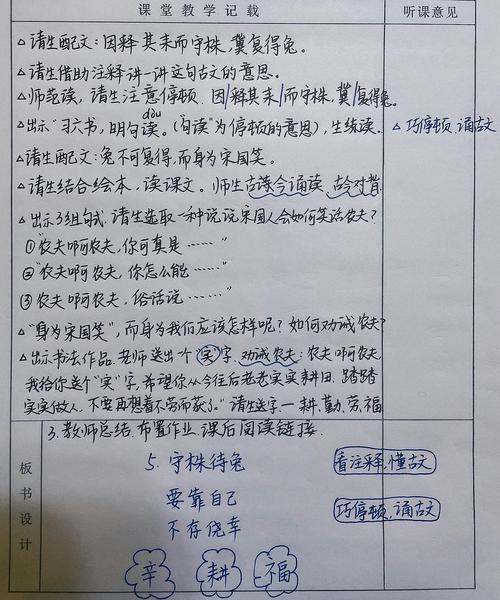 课堂教学记载 听课意见
△请生配文：因释其耒而守株，冀复得兔。
△请生借助注释讲一讲这句古文的意思。
△师范读，请生注意停顿。因/释其耒/而守株，冀/复得兔。
dòu
△出示“习六书，明句读。（“句读”为停顿的意思），生练读。 △巧停顿，诵古文
△请生配文：兔不可复得，而身为宋国笑。
△请生结合绘本，读课文。师生古读今诵读，古今对背
△出示3组句式，请生选取一种说说宋国人会如何笑话农夫？
①“农夫啊农夫，你可真是……”
②“农夫啊农夫，你怎么能……”
③“农夫啊农夫，俗话说……”
△“身为宋国笑”，而身为我们应该怎样呢？如何劝诫农夫？
△出示书法作品，老师送出个“实”字，劝诫农夫：农夫啊农夫
我给你送个“实”字，希望你从今往后老老实实耕田，踏踏
实实做人，不要再想着不劳而获了。”请生送字—耕、勤、劳、福
3.教师总结，布置作业，课后阅读链接。
板书设计
5.守株待兔 看注释，懂古文
要靠自己
不存侥幸 巧停顿，诵古文
辛 耕 福